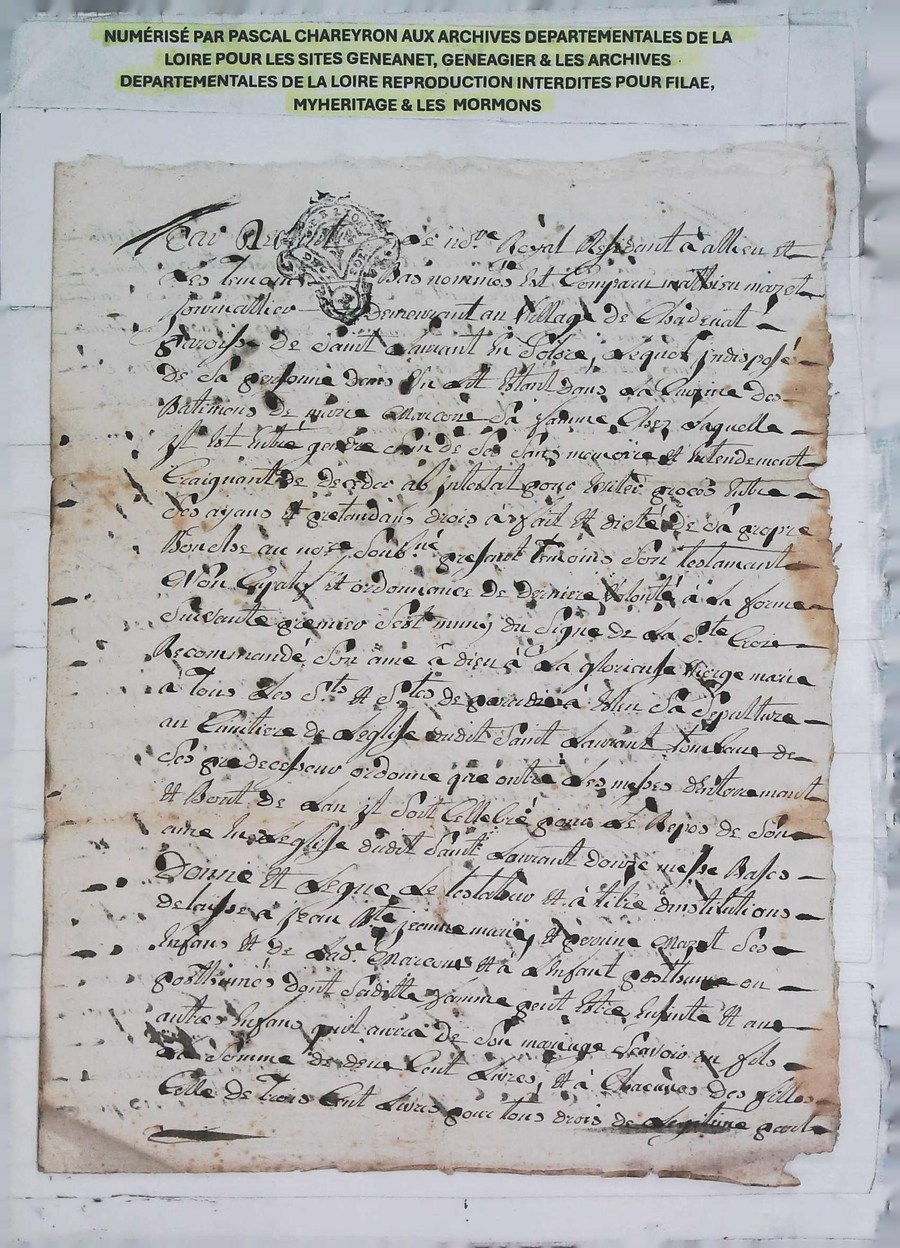 NUMÉRISÉ PAR PASCAL CHAREYRON AUX ARCHIVES DEPARTEMENTALES DE LA
LOIRE POUR LES SITES GENEANET, GENEAGIER & LES ARCHIVES
DEPARTEMENTALES DE LA LOIRE REPRODUCTION INTERDITES POUR FILAE,
MYHERITAGE & LES MORMONS
Par re Royal Residant à allieu et
Les temoins bas nommés Est Comparu mathieu mazet
journallier Demeurant au Village de Chadenat
paroisse de Saint Laurant En Solore, Lequel Indisposé
De Sa personne dans Un Lit Etant dans La Cuisine des
Batimens de marie Marcoux Sa famme Chez Laquelle
jl Est Entré gendre Sain de Ses Sans memoire et Entendement
Craignant de deceder ab jntestat pour Eviter proces Entre
Ses ayans et pretandans drois à fait et dicté De Sa propre
Bouche au nore Soubné presant temoins Son testamant
et ordonnance de derniere Volonté à La forme
Suivante premier Sest muny du Signe de La Ste Croix
Recommandé Son ame à dieu à La glorieuse Vierge marie
à tous Les Sts et Stes de paradis à Elu Sa Sepulture
au Cimitiere de Leglise dudit Saint Laurant tombau de
Ses predecesseur ordonne que outre Les messes dEnterremant
et Bout de Lan jl Soit Cellebré pour Le Repos de Son
ame En Leglise dudit Saint Laurant douze messe Basses
Donne et Legue Le testateur et à titre dinstitutions
delaisse à jean Bte jeanne marie, et perrine Mazet Ses
Enfans et de Lade Marcoux et à LEnfant posthume ou
posthumes dont Saditte famme peut Etre Enfinte et aux
autres Enfans quil aura de Son mariage Scavoir au fils
La Somme de deux Cent Livres, et à Chacunes des filles
Celle de trois Cent Livres pour tous drois de Legitime part